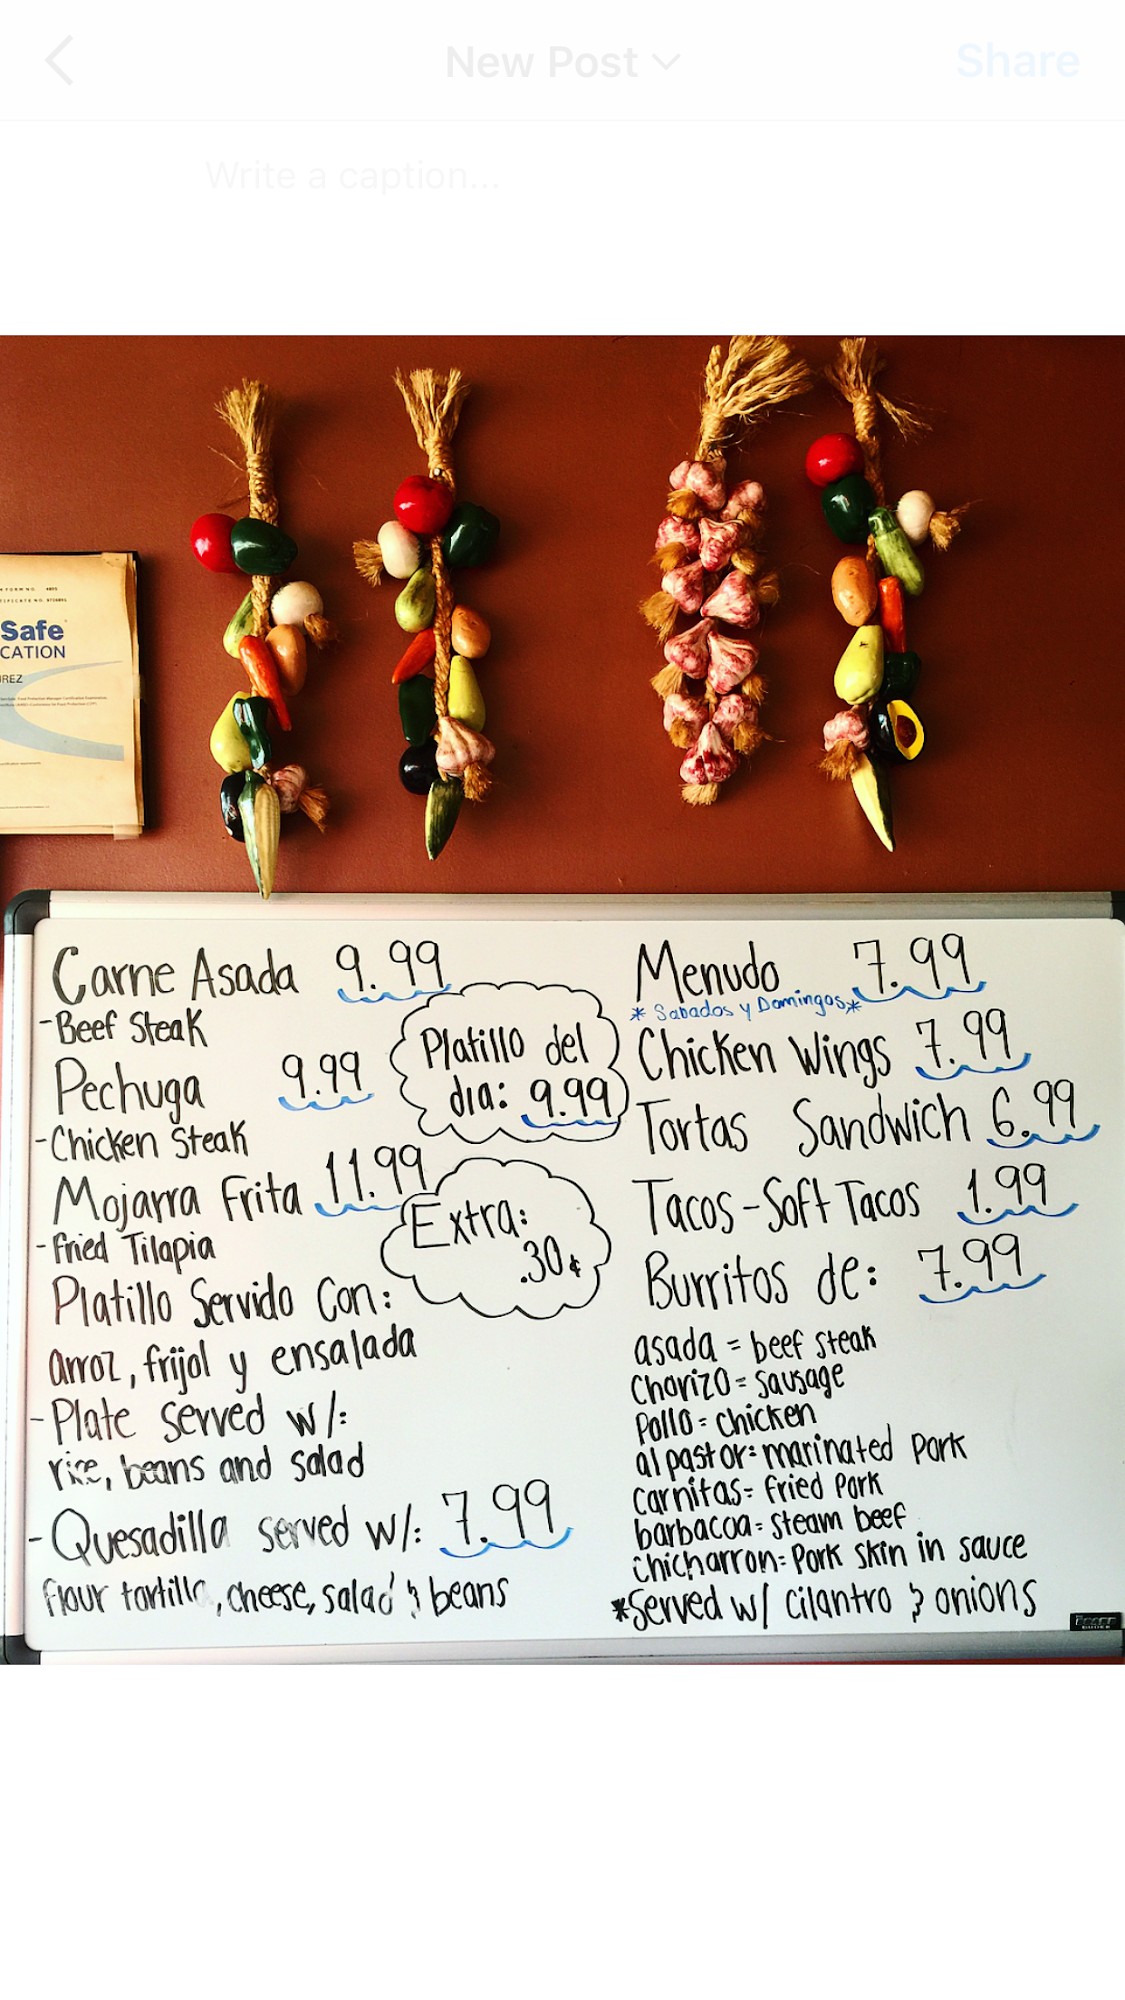 New Post
Share
Write a caption...
Safe
CATION
REZ
Carne Asada 9.99
-Beef Steak
Pechuga 9.99
-Chicken Steak
Mojarra Frita 11.99
-Fried Tilapia
Platillo Servido Con:
arroz, frijol y ensalada
-Plate served w/:
rice, beans and salad
-Quesadilla served w/: 7.99
flour tortilla, cheese, salad & beans
Platillo del
dia: 9.99
Extra:
.30¢
Menudo 7.99
* Sabados y Domingos*
Chicken Wings 7.99
Tortas Sandwich 6.99
Tacos-Soft Tacos 1.99
Burritos de: 7.99
asada = beef steak
Chorizo = sausage
Pollo = chicken
al pastor = marinated Pork
carnitas = Fried Pork
barbacoa = steam beef
chicharron = Pork skin in sauce
*Served w/ cilantro & onions